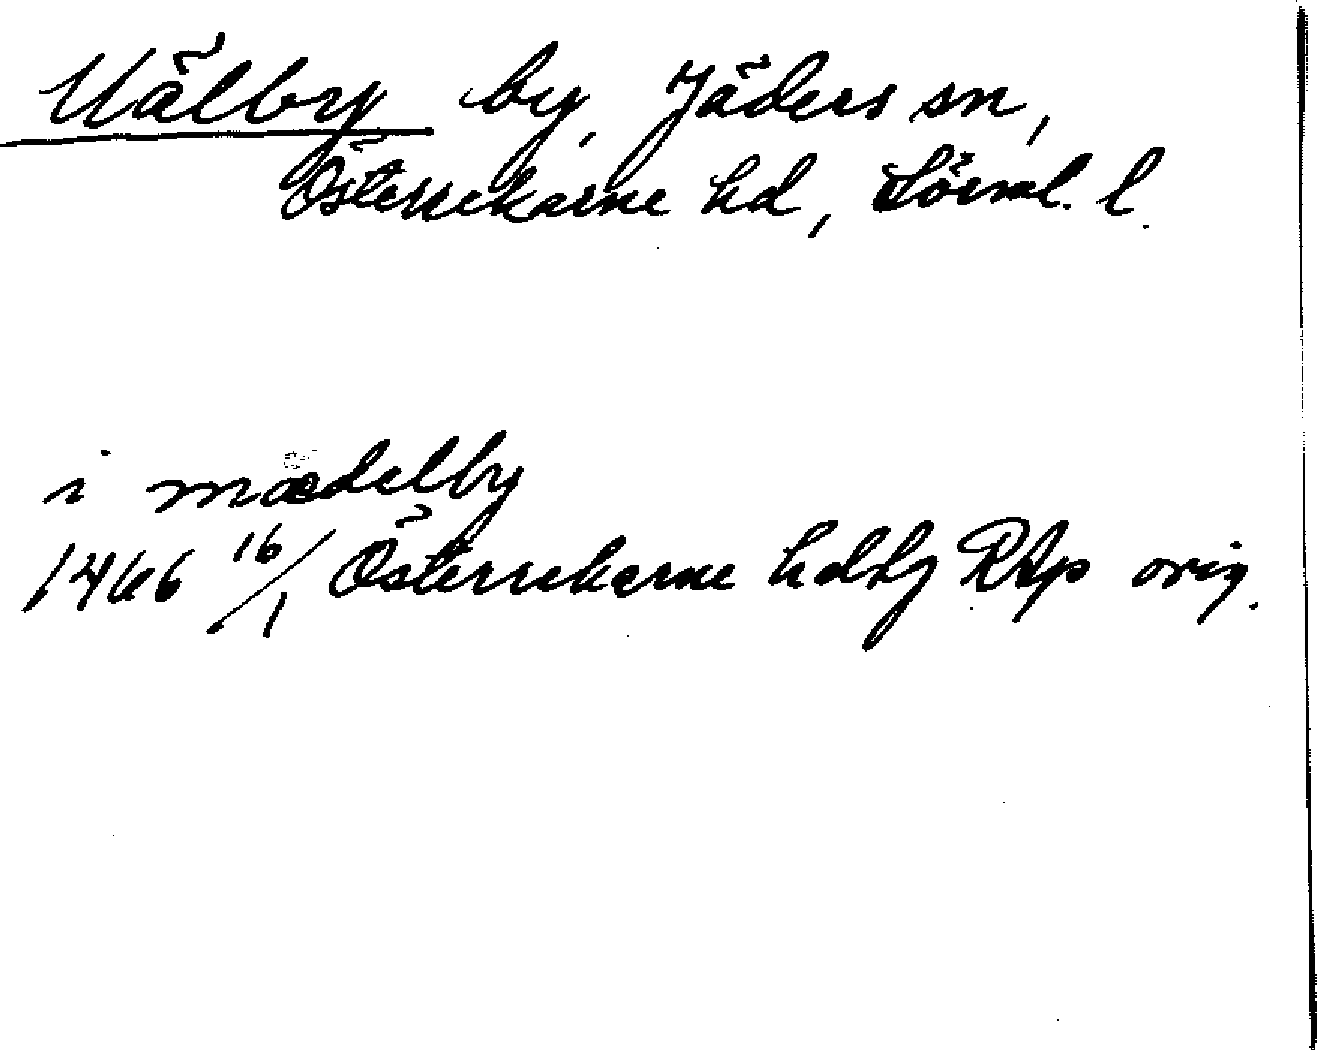 Mälby by, Jäders sn,
Österrekarne hd, Sörml. l.
i mædelby
1466 16/1 Österrekarne hdbg RAp orig.